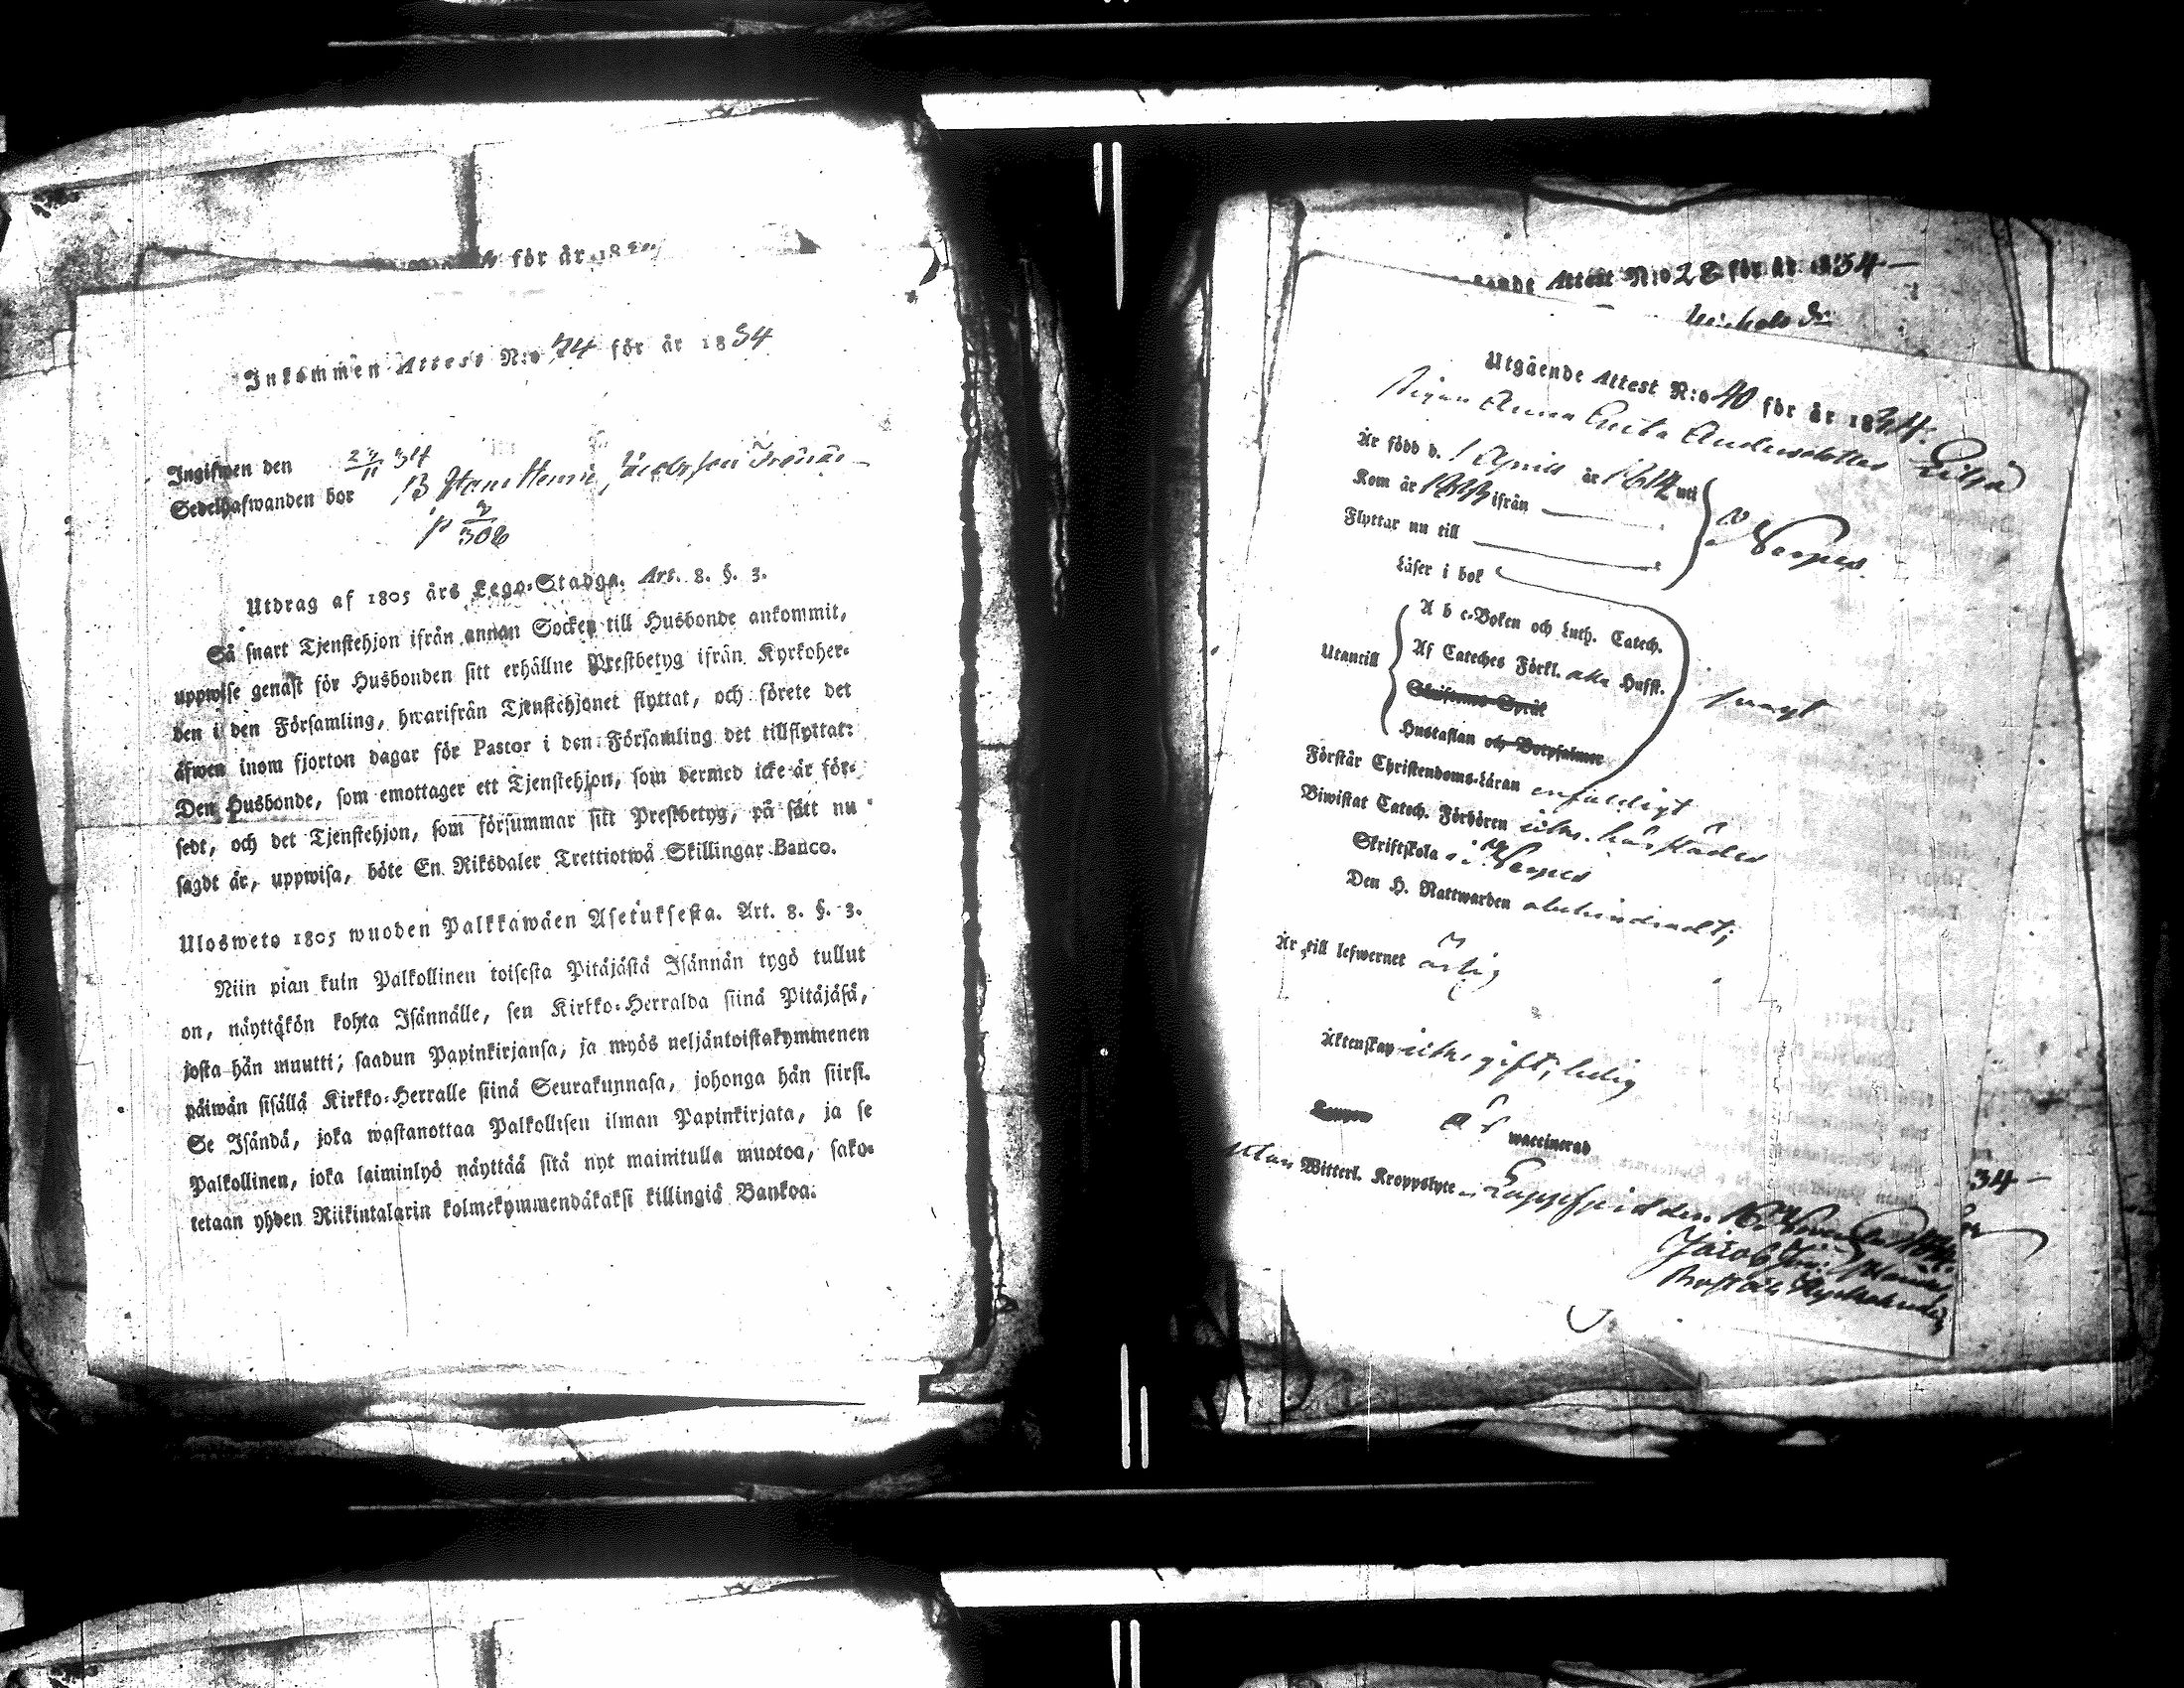 för år 18
Inkommen Attest N:o 74 för år 1834
Ingifwen den 27/11 34
Sedelhafwanden bor
p 306
Utdrag af 1805 års Lego-Stadga. Art. 8. §. 3.
Så snart Tjenstehjon ifrån annan Socken till Husbonde ankommit,
uppwise genast för Husbonden sitt erhållne Prestbetyg ifrån Kyrkoher-
den i den Församling, hwarifrån Tjenstehjonet flyttat, och förete det
äfwen inom fjorton dagar för Pastor i den Församling det tillflyttat:
Den Husbonde, som emottager ett Tjenstehjon, som dermed icke är för-
sedt, och det Tjenstehjon, som försummar sitt Prestbetyg, på sätt nu
sagdt är, uppwisa, böte En Riksdaler Trettiotwå Skillingar Banco.
Ulosweto 1805 wuoden Palkkawäen Asetuksesta. Art. 8. §. 3.
Niin pian kuin Palkollinen toisesta Pitäjästä Isännän tygö tullut
on, näyttäkön kohta Isännälle, sen Kirkko-Herralda siinä Pitäjäsä,
josta hän muutti; saadun Papinkirjansa, ja myös neljäntoistakymmenen
päiwän sisällä Kirkko-Herralle siinä Seurakunnasa, johonga hän siirsi.
Se Isändä, joka wastanottaa Palkollisen ilman Papinkirjata, ja se
Palkollinen, joka laiminlyö näyttää sitä nyt mainitulla muotoa, sako-
tetaan yhden Riikintalarin kolmekymmendäkaksi killingiä Bankoa.
Attest N:o 28 för år 1834
Utgående Attest N:o 40 för år 1834.
Pigan Anna Greta Andersdotter Lilsjö
Är född d. 1 April år 1814 uti
Kom år ifrån
Flyttar nu till
Närpes.
Läser i bok
A b c-Boken och Luth. Catech.
Utantill
Af Cateches Förkl. Husst.
Skriftens Språk
Hustaflan och Botpsalmer
Förstår Christendoms-Läran enfaldigt
Biwistat Catech. Förhören härstädes
Skriftskola i Närpes
Den H. Nattwarden obehindradt;
Är till lefwernet ärlig
Äktenskap gift; ledig
är waccinerad
utan Witterl. Kroppslyte
Lappfjerd den
34
Jacob